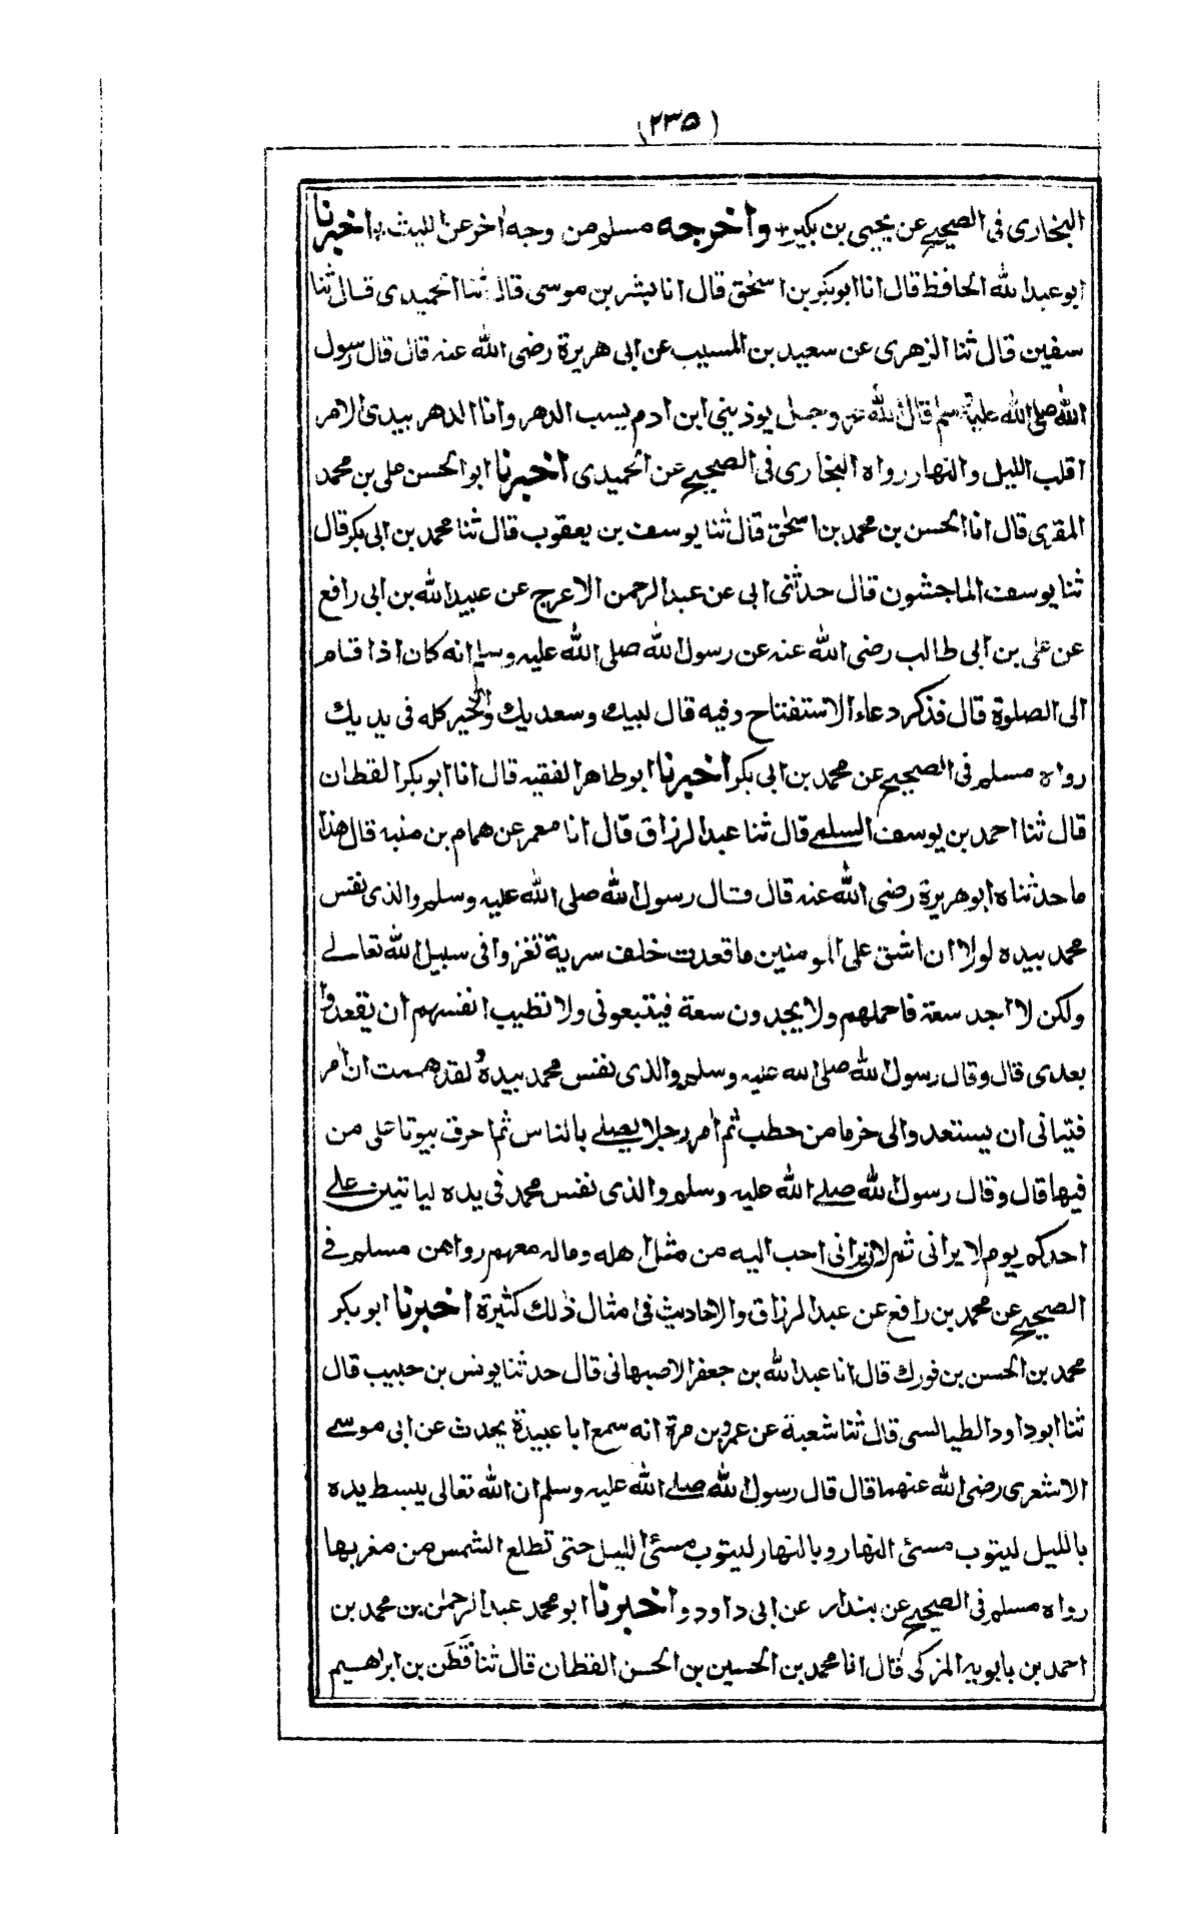 (۲۳۵)
البخارى فى الصحيح عن يحيى بن بكير، واخرجه مسلم من وجه اٰخر عن الليث، اخبرنا
ابو عبد الله الحافظ قال انا ابو بكر بن اسحٰق قال انا بشر بن موسى قال ثنا الحميدى قال ثنا
سفين قال ثنا الزهرى عن سعيد بن المسيب عن ابى هريرة رضى الله عنه قال قال رسول
الله صلى الله عليه وسلم قال الله عز وجل يوذينى ابن ادم يسب الدهر وانا الدهر بيدى الامر
اقلب الليل والنهار رواه البخارى فى الصحيح عن الحميدى اخبرنا ابو الحسن على بن محمد
المقرى قال انا الحسن بن محمد بن اسحٰق قال ثنا يوسف بن يعقوب قال ثنا محمد بن ابى بكر قال
ثنا يوسف الماجشون قال حدثنى ابى عن عبد الرحمن الاعرج عن عبيد الله بن ابى رافع
عن على بن ابى طالب رضى الله عنه عن رسول الله صلى الله عليه وسلم انه كان اذا قام
الى الصلوة قال فذكر دعاء الاستفتاح وفيه قال لبيك وسعديك والخير كله فى يديك
رواه مسلم فى الصحيح عن محمد بن ابى بكر اخبرنا ابو طاهر الفقيه قال انا ابو بكر القطان
قال ثنا احمد بن يوسف السلمى قال ثنا عبد الرزاق قال انا معمر عن همام بن منبه قال هذا
ما حدثناه ابو هريرة رضى الله عنه قال وقال رسول الله صلى الله عليه وسلم والذى نفس
محمد بيده لولا ان اشق على المومنين ما قعدت خلف سرية تغزوا فى سبيل الله تعالى
ولكن لا اجد سعة فاحملهم ولا يجدون سعة فيتبعونى ولا تطيب انفسهم ان يقعدوا
بعدى قال وقال رسول الله صلى الله عليه وسلم والذى نفس محمد بيده لقد هممت ان اٰمر
فتيانى ان يستعدوا لى حزما من حطب ثم اٰمر رجلا يصلى بالناس ثم احرق بيوتا على من
فيها قال وقال رسول الله صلى الله عليه وسلم والذى نفس محمد فى يده لياتين على
احدكم يوم لا يرانى ثم لان يرانى احب اليه من مثل اهله وماله معهم رواهن مسلم فى
الصحيح عن محمد بن رافع عن عبد الرزاق والاحاديث فى امثال ذلك كثيرة اخبرنا ابو بكر
محمد بن الحسن بن فورك قال انا عبد الله بن جعفر الاصبهانى قال حدثنا يونس بن حبيب قال
ثنا ابو داود الطيالسى قال ثنا شعبة عن عمرو بن مرة انه سمع ابا عبيدة يحدث عن ابى موسى
الاشعرى رضى الله عنهما قال قال رسول الله صلى الله عليه وسلم ان الله تعالى يبسط يده
بالليل ليتوب مسئ النهار وبالنهار ليتوب مسئ الليل حتى تطلع الشمس من مغربها
رواه مسلم فى الصحيح عن بندار عن ابى داود واخبرنا ابو محمد عبد الرحمٰن بن محمد بن
احمد بن بابويه المزكى قال انا محمد بن الحسين بن الحسن القطان قال ثنا قَطَن بن ابراهيم